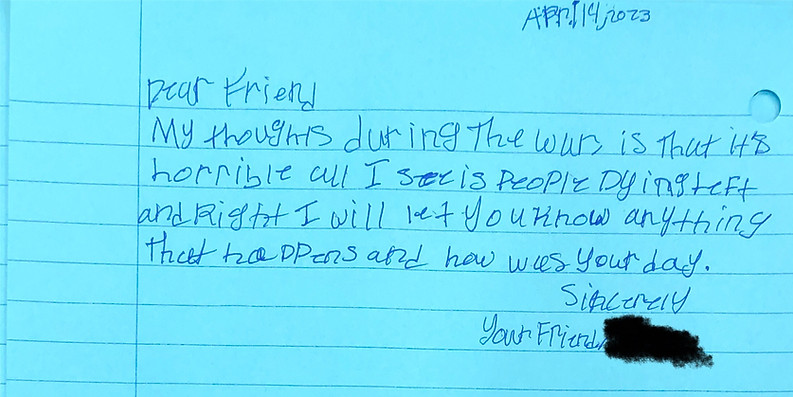 April 14, 2023
Dear Friend
My thoughts during The war, is that it's
horrible all I see is People Dying left
and Right I will let you Know anything
that happens and how was your day.
Sincerely
Your Friend,